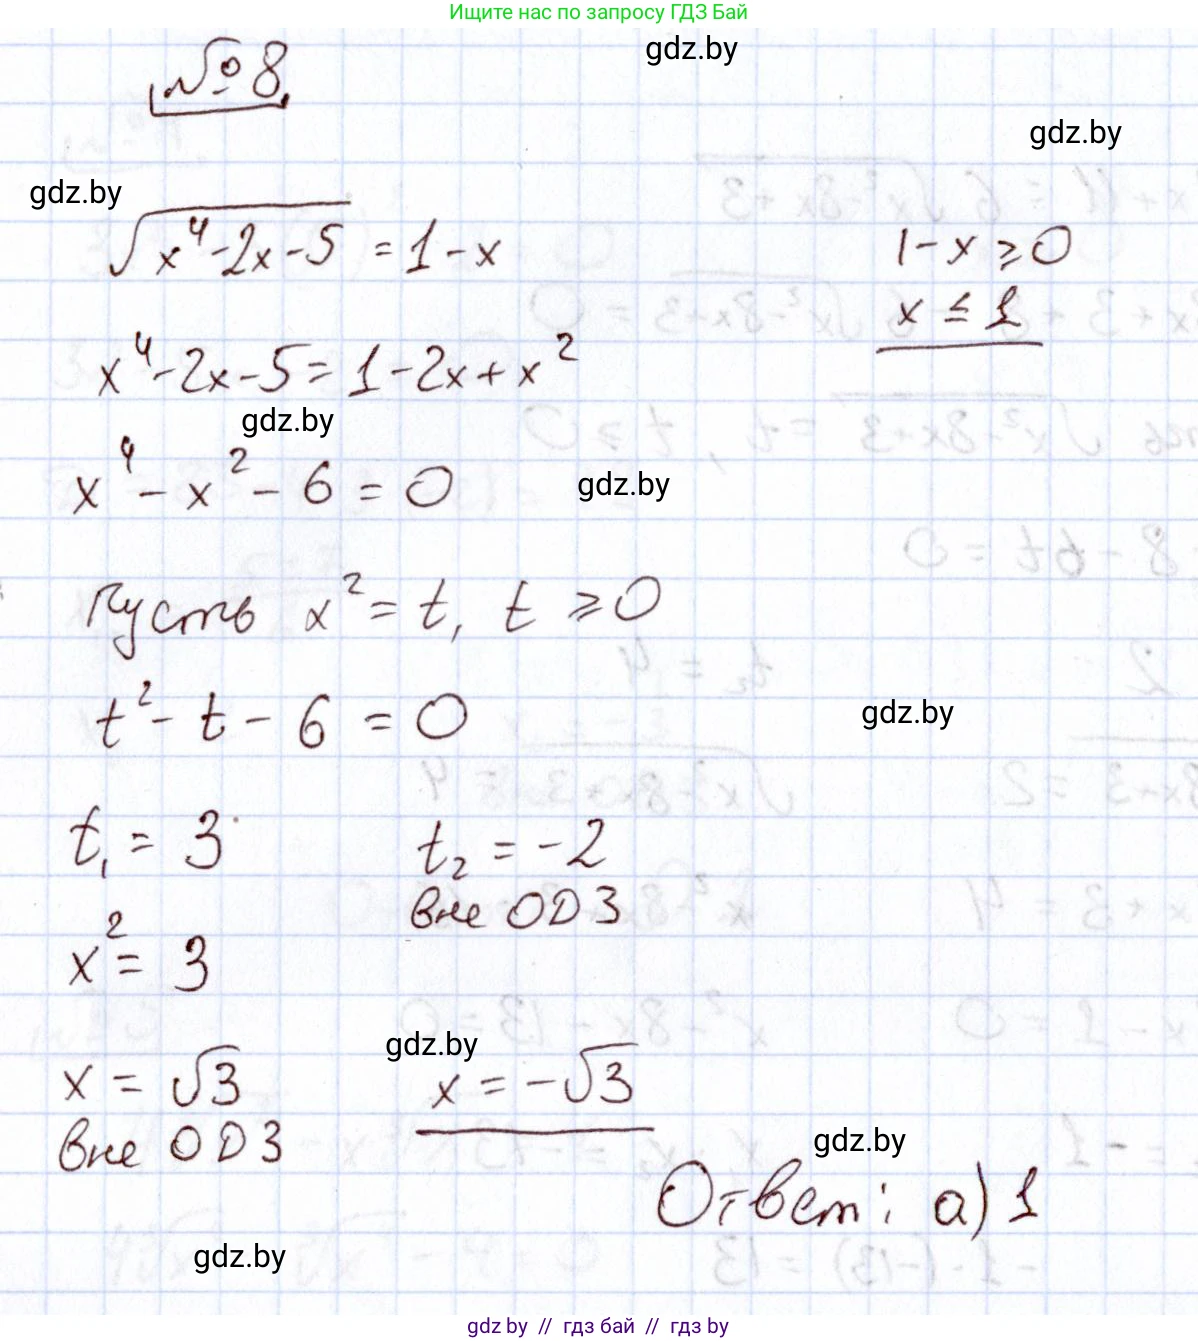 Ищите нас по запросу ГДЗ Бай
gdz.by
№8.
gdz.by
gdz.by
√(x⁴-2x-5) = 1-x
1-x ≥ 0
x ≤ 1
x⁴-2x-5 = 1-2x+x²
gdz.by
x⁴-x²-6 = 0
gdz.by
Пусть x² = t, t ≥ 0
t²-t-6 = 0
gdz.by
t₁ = 3
t₂ = -2
вне ОДЗ
x² = 3
gdz.by
x = √3
x = -√3
вне ОДЗ
gdz.by
Ответ: а) 1
gdz.by
gdz by // гдз бай // гдз by